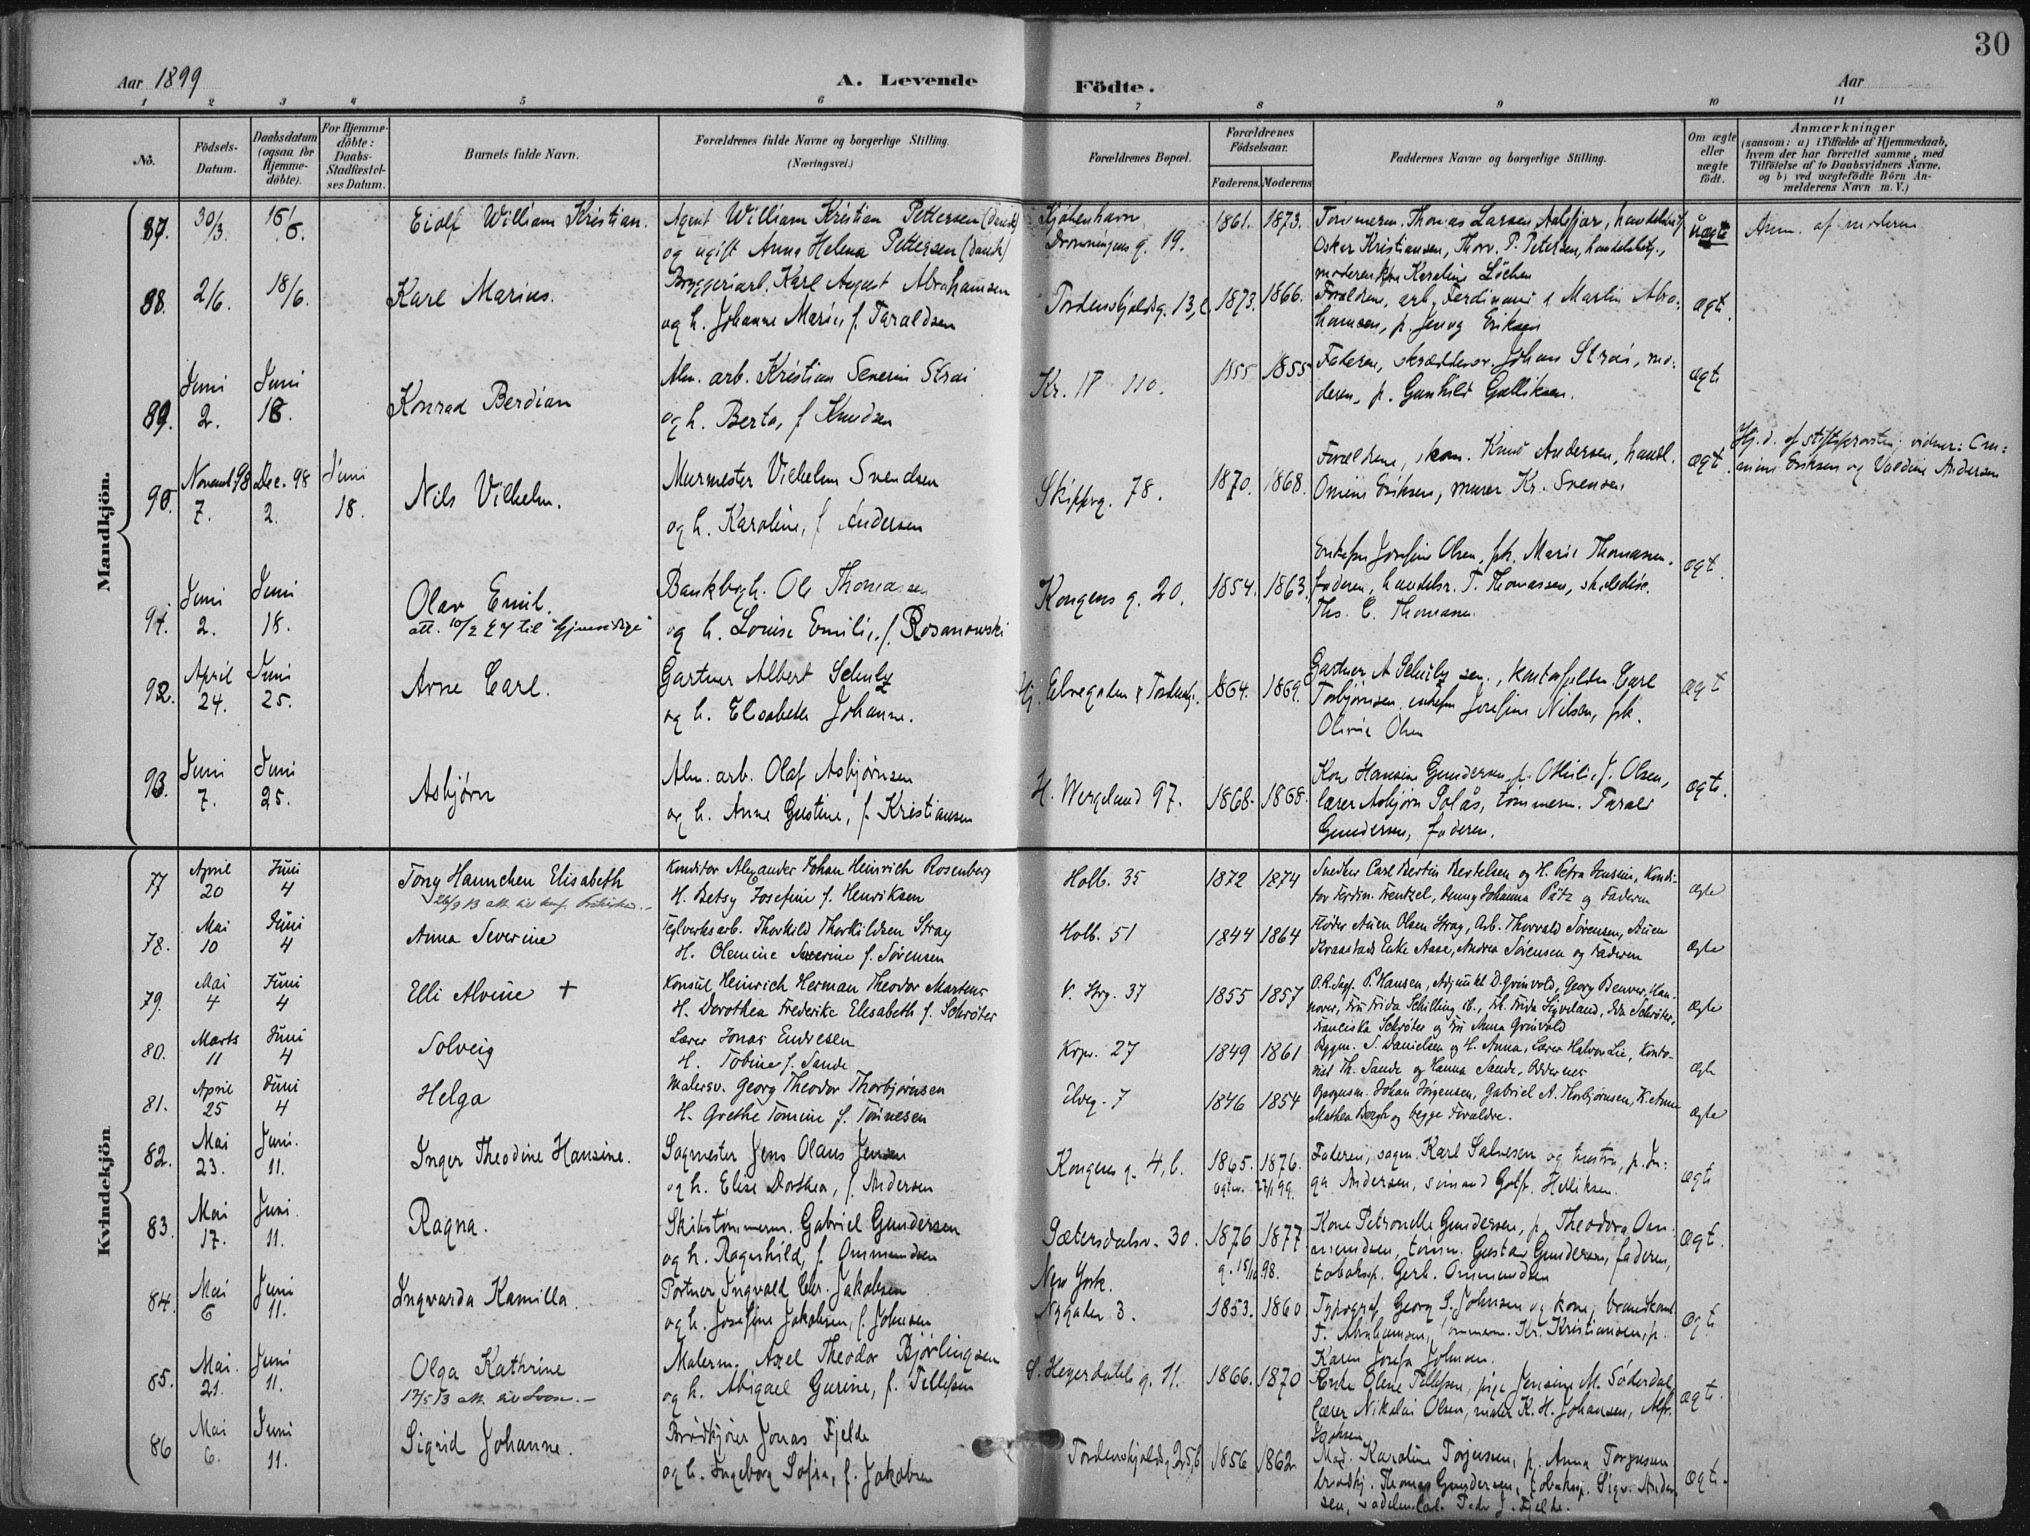 30
Aar 1899
A. Levende Födte.
Aar
1 2 3 4 5 6 7 8 9 10 11
No.
Födsels-Datum.
Daabsdatum (ogsaa for Hjemme-döbte).
For Hjemme-döbte: Daabs-Stadfæstel-ses Datum.
Barnets fulde Navn.
Forældrenes fulde Navne og borgerlige Stilling. (Næringsvei.)
Forældrenes Bopæl.
Forældrenes Födselsaar.
Faderens. Moderens
Faddernes Navne og borgerlige Stilling.
Om ægte eller uægte födt.
Anmærkninger
(saasom: a) i Tilfælde af Hjemmedaab, hvem der har forrettet samme, med Tilföielse af to Daabsvidners Navne, og b) ved uægtefödte Börn An-melderens Navn m. V.)
Mandkjön.
87. 30/3 Eiolf William Kristian. Agent William Kristian Pettersen (dansk) Kjøbenhavn 1861. 1873. Tømmerm. Thomas Larsen uægte Anm. af moderen
og ugift Anna Helena Pettersen (dansk) Dronningens g. 19. Oskar Kristiansen, Thorv. P. Petersen, handelsbetj.,
88. 2/6. 18/6. Karl Marius. Bryggeriarb. Karl August Abrahamsen Tordenskjoldsg. 13, 1873. 1866. Forældrene, arb. Ferdinand & Martin Abra- ægt.
og h. Johanne Marie, f. Taraldsen hamsen, p. Jenny Eriksen
89. Juni 2. Juni 18. Konrad Berdian Alm. arb. Kristian Severin Strai Kr. IV 110. 1855 1855 Faderen, Johan Strai, mo- ægt.
og h. Berta, f. Knudsen deren, p. Gunhild Gulliksen.
90. Novemb. 98 7. Dec. 98 2. Juni 18. Nils Vilhelm. Murmester Vilhelm Svendsen Skipperg. 78. 1870. 1868. Forældrene, skom. Knud Andersen, handl. ægt. Hj.d. af stiftsprovsten; vidner: Om-
og h. Karoline, f. Andersen Omine Eriksen, murer Kr. Svensen mine Eriksen og Valdine Andersen
91. Juni 2. Juni 18. Olav Emil. Bankbogh. Ole Thomasen Kongens g. 20. 1854. 1863. Enkefru Josefine Olsen, frk. Marie Thomasen. ægt.
og h. Louise Emilie, f. Rosanowski faderen, handelsr. T. Thomassen,
Ths. C. Thomasen.
92. April 24. Juni 25. Arne Carl. Gartner Albert Schulz Elvegaden 1864. 1869. Gartner A Schulz sen., Carl ægt
og h. Elisabeth Johanne. Torbjørnsen, enkefru Josefine Nilsen, frk.
Olivie Olsen
93. Juni 7. Juni 25. Asbjørn Alm. arb. Olaf Asbjørnsen H. Wergeland 97. 1868. 1868. Kone Hansine Gundersen, p. Otilie, f. Olsen, ægt.
og h. Anne Gustine, f. Kristiansen lærer Asbjørn Solås, tømmerm. Tarald
Gundersen, faderen.
Kvindekjön
77 April 20 Juni 4 Tony Hannchen Elisabeth Konditor Alexander Johan Heinrich Rosenberg Holb. 35 1872 1874 Snedker Carl Bertin Bertelsen og H. Petra Jensine, Kondi- ægte
H. Betsy Josefine f. Henriksen tor Ferdin. Frentzel, Jenny Johanna Pätz og Faderen
78. Mai 10 Juni 4 Anna Severine Teglverksarb. Thorkild Thorkildsen Stray Holb. 51 1844 1864 Fløder Auen Olsen Stray, Arb. Thorvald Sørensen, Auen ægte
H. Olemine Severine f. Sørensen Enke Aase, Andrea Sørensen og Faderen
79. Mai 4 Juni 4 Elli Alvine + Konsul Heinrich Herman Theodor Martens V. Strg. 37 1855 1857 O.R.Sagf. P. Hansen, Adjunkt D. Grönvold, Georg Benver, Han- ægte
H. Dorothea Frederike Elisabeth f. Schröter nover, Fru Frida Schilling ib., Ida Schröter,
Franciska Schröter og Fru Anna Grönvold
80. Marts 11 Juni 4 Solveig Lærer Jonas Endresen Krpr. 27 1849 1861 Byggm. S. Danielsen og H. Anna, Lærer Halvor Lie, Konto- ægte
H. Tobine f. Sande rist Th. Sande og Hanna Sande, Oddernes
81. April 25 Juni 4 Helga Malersv. Georg Theodor Thorbjørnsen Elveg. 7 1846 1854 Opsynsm. Johan Jörgensen, Gabriel A. Thorbjørnsen, K. Anne ægte
H. Grethe Tomine f. Tönnesen Mathea Bergh og begge Forældre.
82. Mai 23. Juni. 11. Inger Theodine Hansine. Sagmester Jens Olaus Jensen Kongens g. 4, b. 1865. 1876. Faderen, sagm. Karl Salvesen og hustru, p. In- ægt.
og h. Elise Dorthea, f. Andersen 27/1 99. ga Andersen, sømand Helliksen.
83. Mai 17. Juni. 11. Ragna. Skibstømmerm. Gabriel Gundersen Sætersdalsv. 30. 1876 1877 Kone Petronelle Gundersen, p. Theodora Om- ægt.
og h. Ragnhild, f. Ommundsen g. 15/10 98. mundsen, tømm. Gustav Gundersen, faderen,
New York. tobaksp. Gerh. Ommundsen
84. Mai 6 Juni 11. Ingvarda Kamilla. Portner Ingvald Chr. Jakobsen Nygaden 3. 1853. 1860 Typograf Georg S. Johnsen og kone, ægt.
og h. Josefine Jakobsen, f. Johnsen T. Abrahamsen, tømmerm. Kr. Kristiansen, p.
Karen Josefa Johnsen.
85. Mai. 21. Juni 11. Olga Kathrine Malerm. Axel Theodor Bjørlingsen S. Heyerdahls g. 11. 1866. 1870 Enke Olene Tellefsen, pige Jensine M. Söderdal, ægt.
og h. Abigael Gurine, f. Tellefsen lærer Nikolai Olsen, maler K. H. Johansen, Alfr.
86 Mai 6. Juni 11. Sigrid Johanne. Brødkjører Jonas Fjelde Tordenskjoldsg. 25,b 1856 1862 Mad. Karoline Torjusen, p. Anna Torgusen ægt.
og h. Ingeborg Sofia, f. Jakobsen brødkj. Thomas Gundersen, tobaksp. Sigv. Ander-
sen, Peder J. Fjelde.